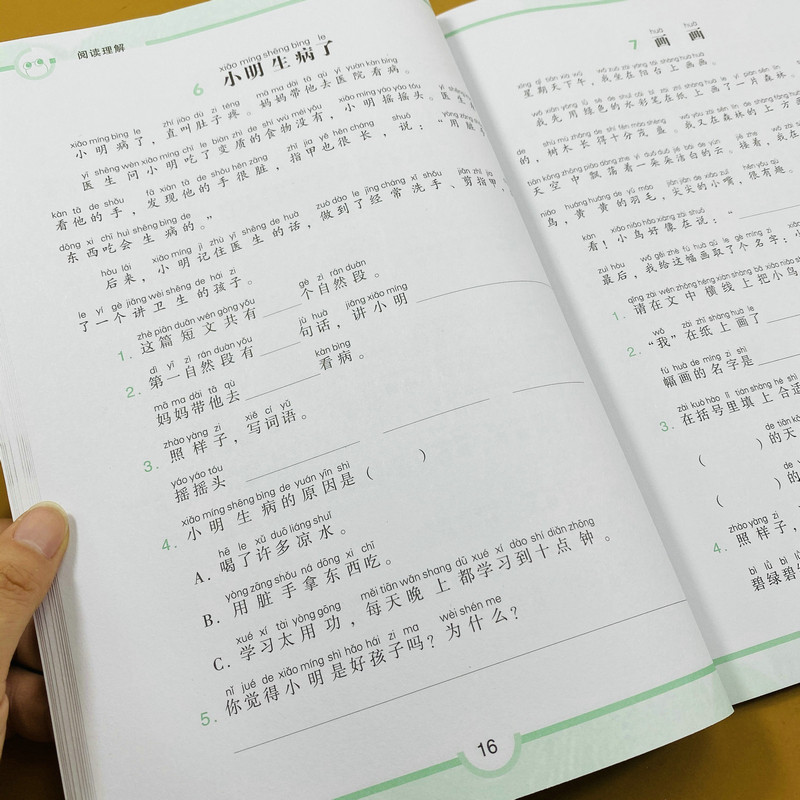 阅读理解
xiǎo míng shēng bìng le
6 小明生病了
xiǎo míng bìng le zhí jiào dù zi téng mā ma dài tā qù yī yuàn kàn bìng
小明病了，直叫肚子疼。妈妈带他去医院看病。
yī shēng wèn xiǎo míng chī le biàn zhì de shí wù méi yǒu xiǎo míng yáo yáo tóu
医生问小明吃了变质的食物没有，小明摇摇头。医生
kàn tā de shǒu fā xiàn tā de shǒu hěn zāng zhī jia yě hěn cháng shuō
看他的手，发现他的手很脏，指甲也很长，说：“用脏手
dōng xi chī huì shēng bìng de
东西吃会生病的。”
hòu lái xiǎo míng jì zhù yī shēng de huà zuò dào le jīng cháng xǐ shǒu
后来，小明记住医生的话，做到了经常洗手、剪指甲，
le yí gè jiǎng wèi shēng de hái zi
了一个讲卫生的孩子。
zhè piān duǎn wén gòng yǒu gè zì rán duàn
1. 这篇短文共有____个自然段。
dì yī zì rán duàn yǒu jù huà jiǎng xiǎo míng
2. 第一自然段有____句话，讲小明____，
mā ma dài tā qù kàn bìng
妈妈带他去____看病。
zhào yàng zi xiě cí yǔ
3. 照样子，写词语。
yáo yáo tóu
摇摇头 ____ ____ ____
xiǎo míng shēng bìng de yuán yīn shì
4. 小明生病的原因是（ ）
hē le xǔ duō liáng shuǐ
A. 喝了许多凉水。
yòng zāng shǒu ná dōng xi chī
B. 用脏手拿东西吃。
xué xí tài yòng gōng měi tiān wǎn shang dū xué xí dào shí diǎn zhōng
C. 学习太用功，每天晚上都学习到十点钟。
nǐ jué de xiǎo míng shì hǎo hái zi ma wèi shén me
5. 你觉得小明是好孩子吗？为什么？
16
huà huà
7 画画
星期天下午，我坐在阳台上画画。
我先用绿色的水彩笔在纸上画了一片森林。
的，树木长得十分茂盛。我又在森林的上方
天空中飘荡着一朵朵洁白的云。接着，我在
鸟，黄黄的羽毛，尖尖的小嘴，很有趣。
kàn xiǎo niǎo hǎo xiàng zài shuō
看！小鸟好像在说：“____
最后，我给这幅画取了个名字：小
1. 请在文中横线上把小鸟
wǒ zài zhǐ shàng huà le
2. “我”在纸上画了____
fú huà de míng zi shì
幅画的名字是____
3. 在括号里填上合适
（ ）的天
（ ）的
zhào yàng zi
4. 照样子，
bì lǜ bì
碧绿碧